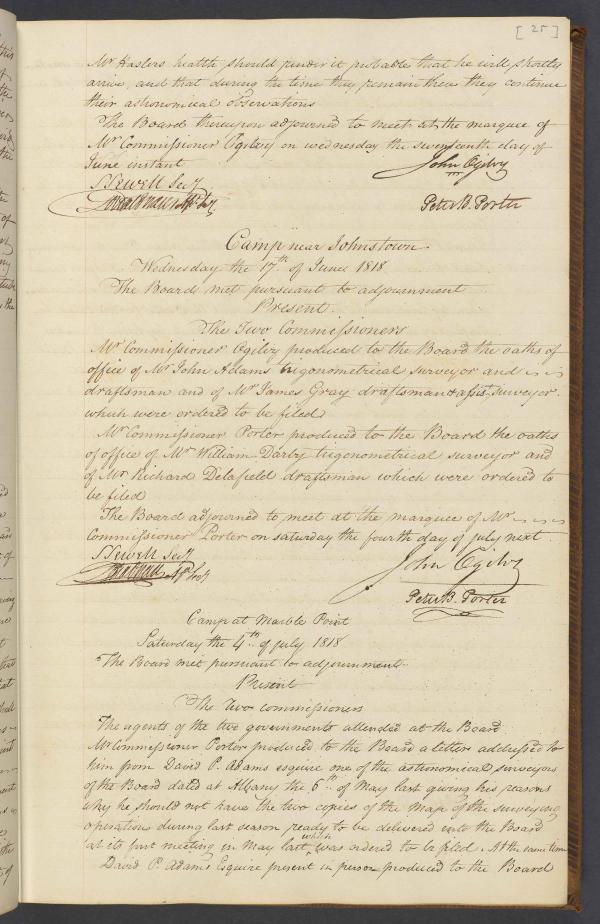 [25]
Mr Haslers health should render it probable that he will shortly
arrive, and that during the time they remain there they continue
their astronomical observations
The Board thereupon adjourned to meet at the marquee of
Mr Commissioner Ogilvy on wednesday the seventeenth day of
June instant
John Ogilvy
S Sewell Secy
Peter B. Porter
Camp near Johnstown
Wednesday the 17th of June 1818
The Board met pursuant to adjournment
Present
The Two Commissioners
Mr Commissioner Ogilvy produced to the Board the oaths of
office of Mr John Adams trigonometrical surveyor and
draftsman and of Mr James Gray draftsman & assist. surveyor
which were ordered to be filed
Mr Commissioner Porter produced to the Board the oaths
of office of Mr William Darby trigonometrical surveyor and
of Mr Richard Delafield draftsman which were ordered to
be filed
The Board adjourned to meet at the marquee of Mr
Commissioner Porter on saturday the fourth day of july next
S Sewell Secy
John Ogilvy
Peter B. Porter
Camp at Marble Point
Saturday the 4th of july 1818
The Board met pursuant to adjournment
Present
The Two commissioners
The agents of the two governments attended at the Board
Mr Commissioner Porter produced to the Board a letter addressed to
him from David P. Adams esquire one of the astronomical surveyors
of the Board dated at Albany the 6th of May last giving his reasons
why he should not have the two copies of the map of the surveying
operations during last season ready to be delivered into the Board
at its past meeting in May last, which was ordered to be filed. At the same time
David P. Adams Esquire present in person produced to the Board